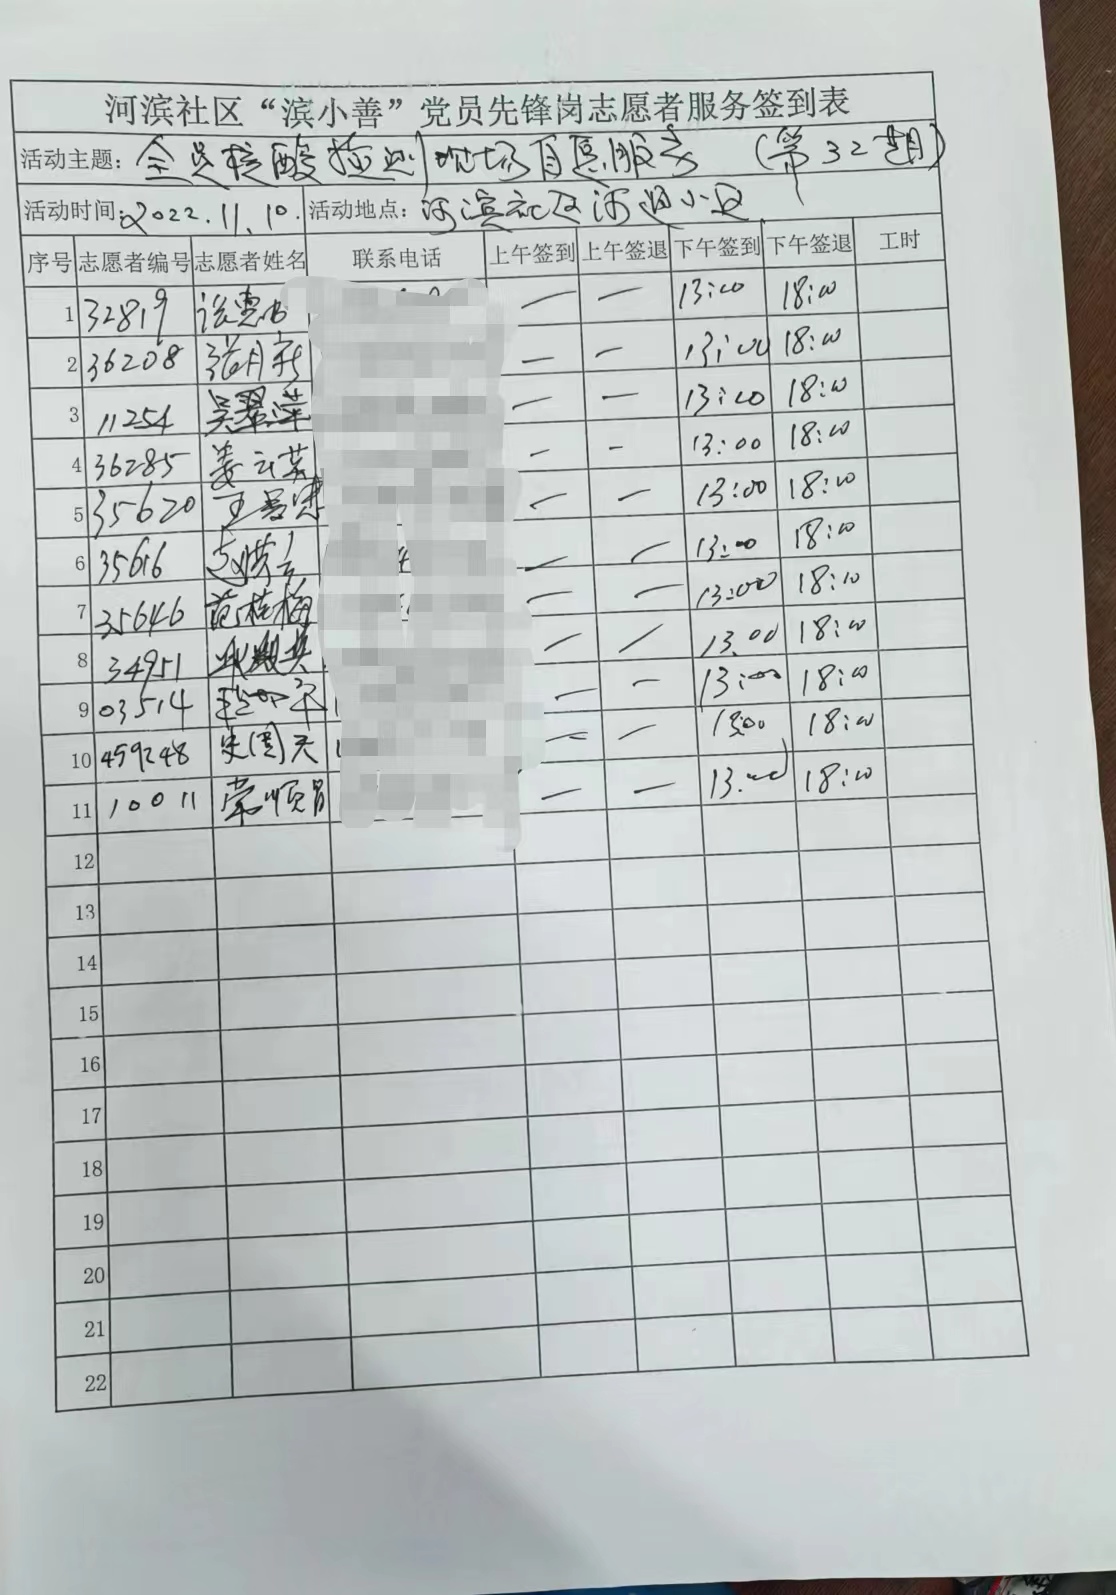 河滨社区“滨小善”党员先锋岗志愿者服务签到表
活动主题：全员核酸检测现场自愿服务（第32期）
活动时间：2022.11.10. 活动地点：河滨社区河迴小区
序号 志愿者编号 志愿者姓名 联系电话 上午签到 上午签退 下午签到 下午签退 工时
1 32819 — — 13:00 18:10
2 36208 张月新 — — 13:00 18:10
3 11254 吴翠萍 — — 13:00 18:10
4 36285 姜云英 — — 13:00 18:10
5 35620 — — 13:00 18:10
6 35616 — — 13:00 18:10
7 35646 范桂梅 — — 13:00 18:10
8 34951 — — 13.00 18:10
9 03514 — — 13:00 18:10
10 459248 — — 13:00 18:10
11 10011 常顺昌 — — 13:00 18:10
12
13
14
15
16
17
18
19
20
21
22